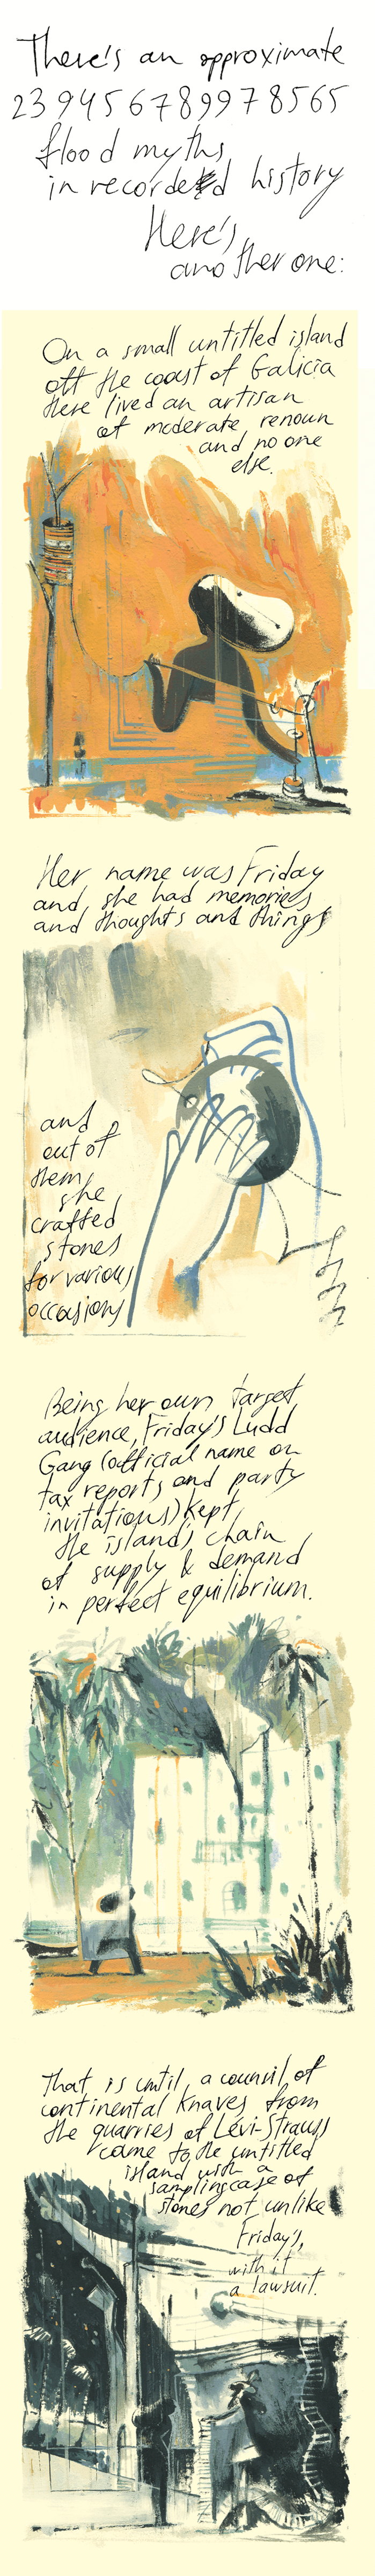 There's an approximate
239456789978565
flood myths
in recorded history
Here's
another one:
On a small untitled island
off the coast of Galicia
there lived an artisan
of moderate renoun
and no one
else.
Her name was Friday
and she had memories
and thoughts and things
and
out of
them
she
crafted
stones
for various
occasions
Being her own target
audience, Friday's Ludd
Gang (official name on
tax reports and party
invitations) kept
the island's chain
of supply & demand
in perfect equilibrium.
That is until a counsil of
continental knaves from
the quarries of Lévi-Strauss
came to the untitled
island with a
sampling case of
stones not unlike
Friday's,
with it
a lawsuit.